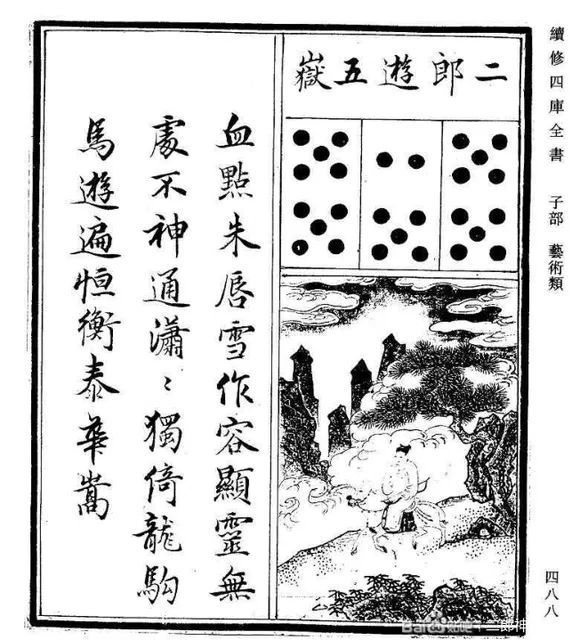 續修四庫全書 子部 藝術類
四八八
二郎遊五嶽
血點朱唇雪作容顯靈無
處不神通瀟〻獨倚龍駒
馬遊遍恒衡泰華嵩
Baidu百科